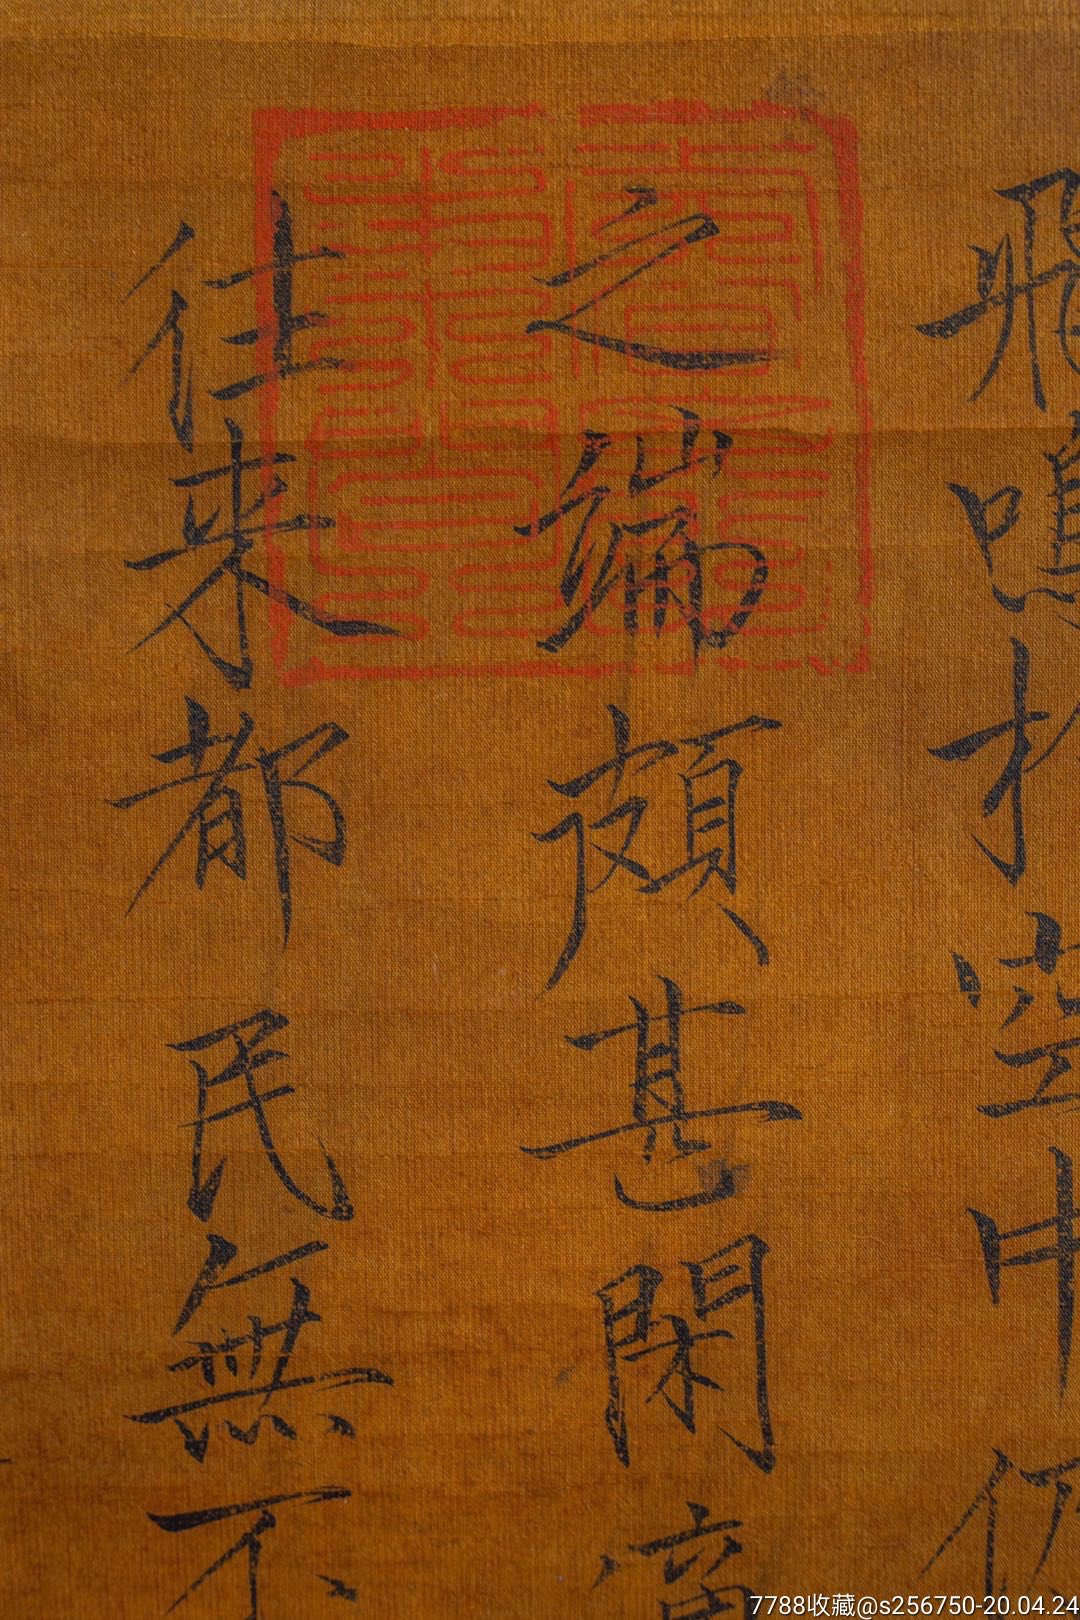 飛鳴扵空中仍
之端頗甚閑
往來都民無不
7788收藏@s256750-20.04.24